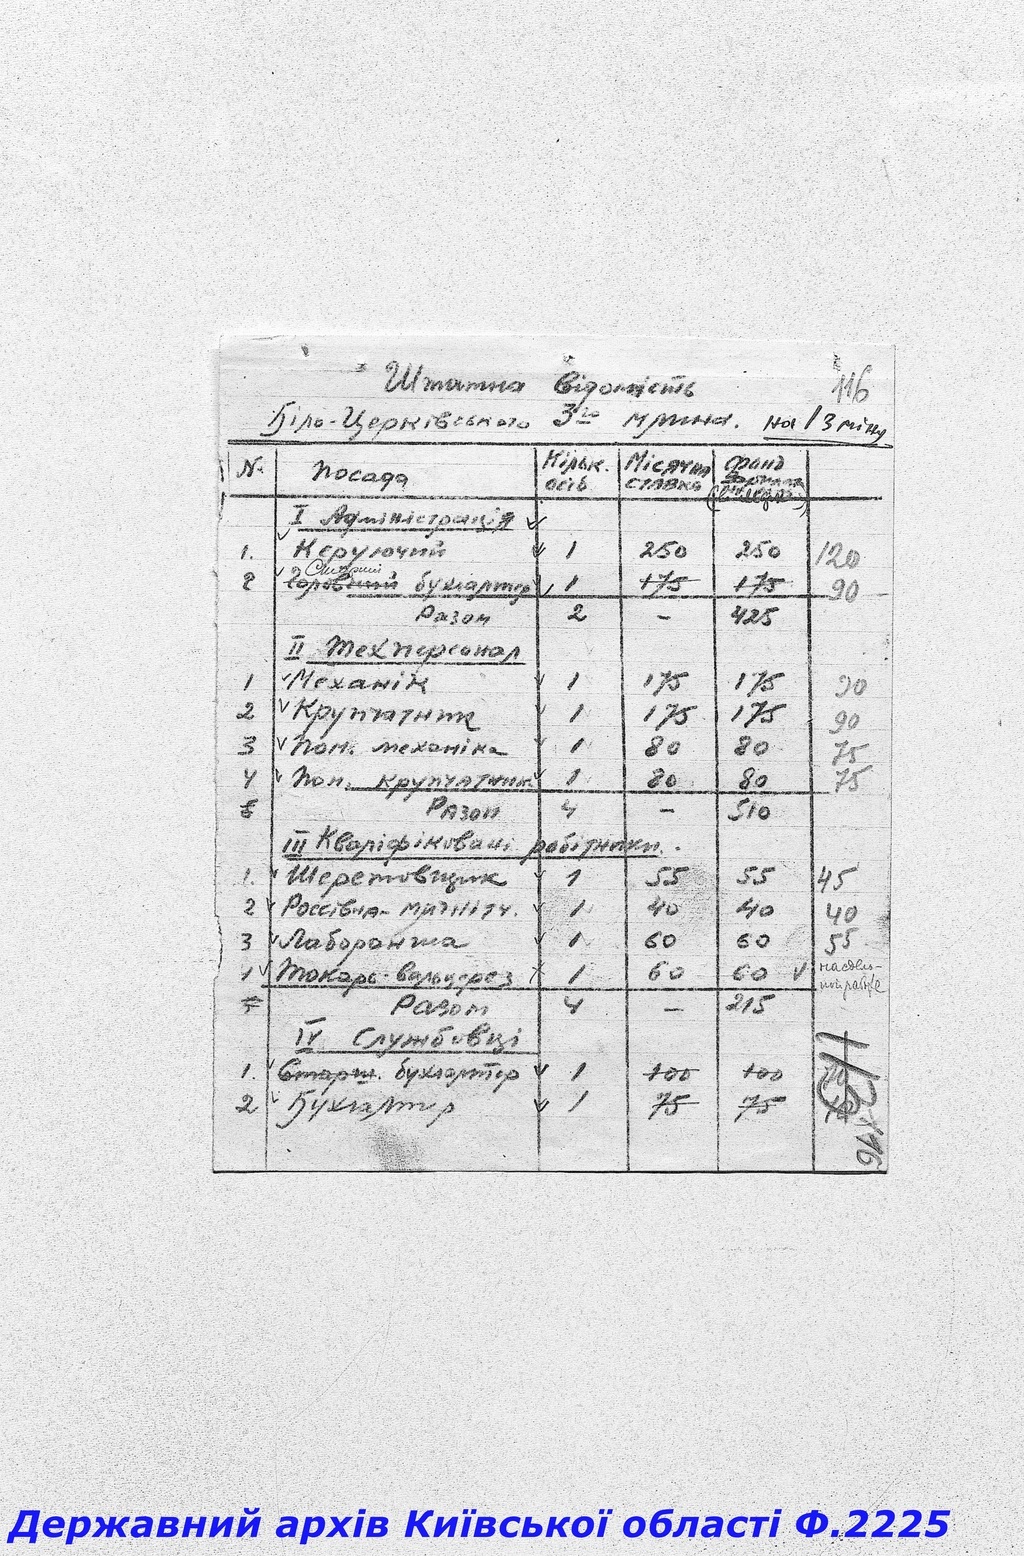 Штатна Відомість
116
Біло-Церківського 3го млина. на 1 зміну
№ Посада Кільк. осіб Місячна ставка Фонд зарплати
I Адміністрація
1. Керуючий 1 250 250 120
Старший
2 бухгалтер 1 175 175 90
Разом 2 - 425
II Техперсонал
1 Механік 1 175 175 90
2 Крупчатник 1 175 175 90
3 Пом. механіка 1 80 80 75
4 Пом. крупчатника 1 80 80 75
Разом 4 - 510
III Кваліфіковані робітники.
1. Шеретовщик 1 55 55 45
2 1 40 40 40
3 Лаборантка 1 60 60 55
1 Токарь-вальцерез 1 60 60
Разом 4 - 215
IV Службовці
1. Старш. бухгалтер 1 100 100
2 Бухгалтер 1 75 75
116
Державний архів Київської області Ф.2225